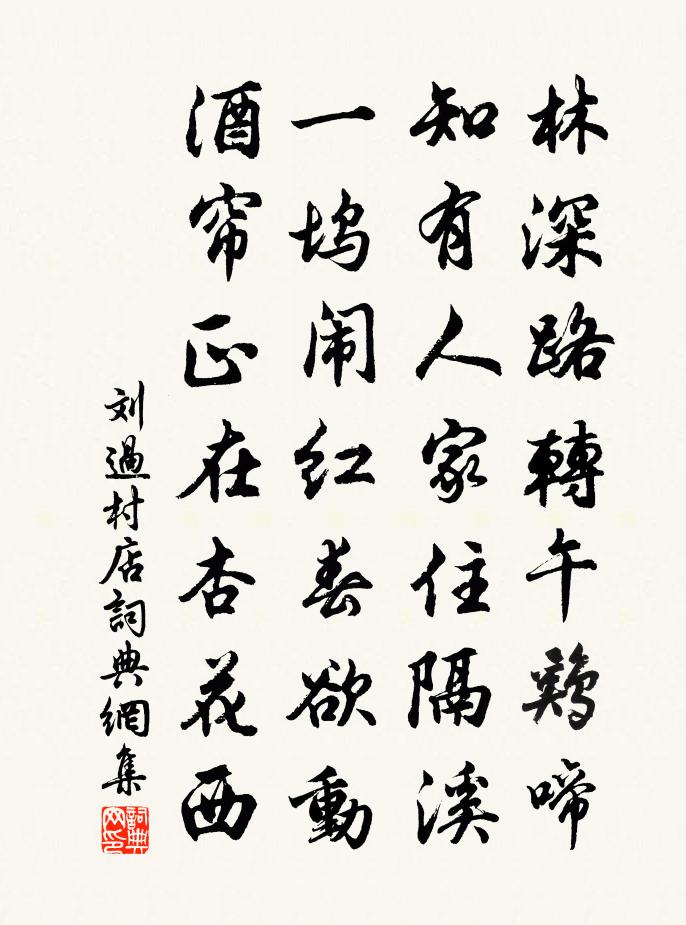 林深路轉午鷄啼
知有人家住隔溪
一坞闹红春欲動
酒帘正在杏花西
刘過村店詞典網集
詞典
网印